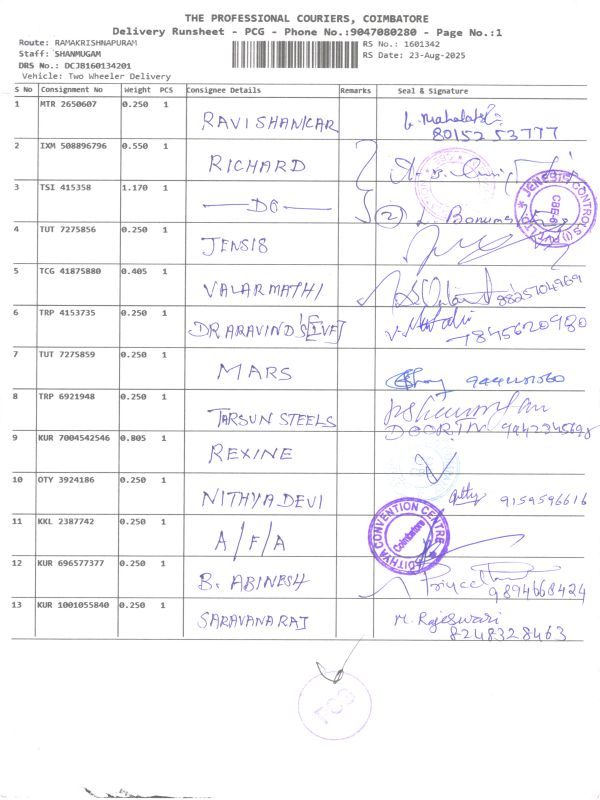 THE PROFESSIONAL COURIERS, COIMBATORE
Delivery Runsheet - PCG - Phone No.:9047080280 - Page No.:1
Route: RAMAKRISHNAPURAM RS No.: 1601342
Staff: SHANMUGAM RS Date: 23-Aug-2025
DRS No.: DCJB160134201
Vehicle: Two Wheeler Delivery
S No Consignment No Weight PCS Consignee Details Remarks Seal & Signature
1 MTR 2650607 0.250 1 RAVISHANKAR Mahalakshmi 80152 53777
2 IXM 508896796 0.550 1 RICHARD
3 TSI 415358 1.170 1 —DO— 2 L. Banuma
JENE CONTROLS (I) PVT LTD
4 TUT 7275856 0.250 1 JENSIS
5 TCG 41875880 0.405 1 VALARMATHI 8825704969
6 TRP 4153735 0.250 1 DR ARAVIND'S [IVF] 7845620980
7 TUT 7275859 0.250 1 MARS
8 TRP 6921948 0.250 1 TARSUN STEELS
9 KUR 7004542546 0.805 1 REXINE
10 OTY 3924186 0.250 1 NITHYA DEVI 9159596616
11 KKL 2387742 0.250 1 A/F/A
ADITHYA CONVENTION CENTRE
Coimbatore
12 KUR 696577377 0.250 1 B. ABINESH 9894668424
13 KUR 1001055840 0.250 1 SARAVANA RAJ M. Rajeswari
8248328463